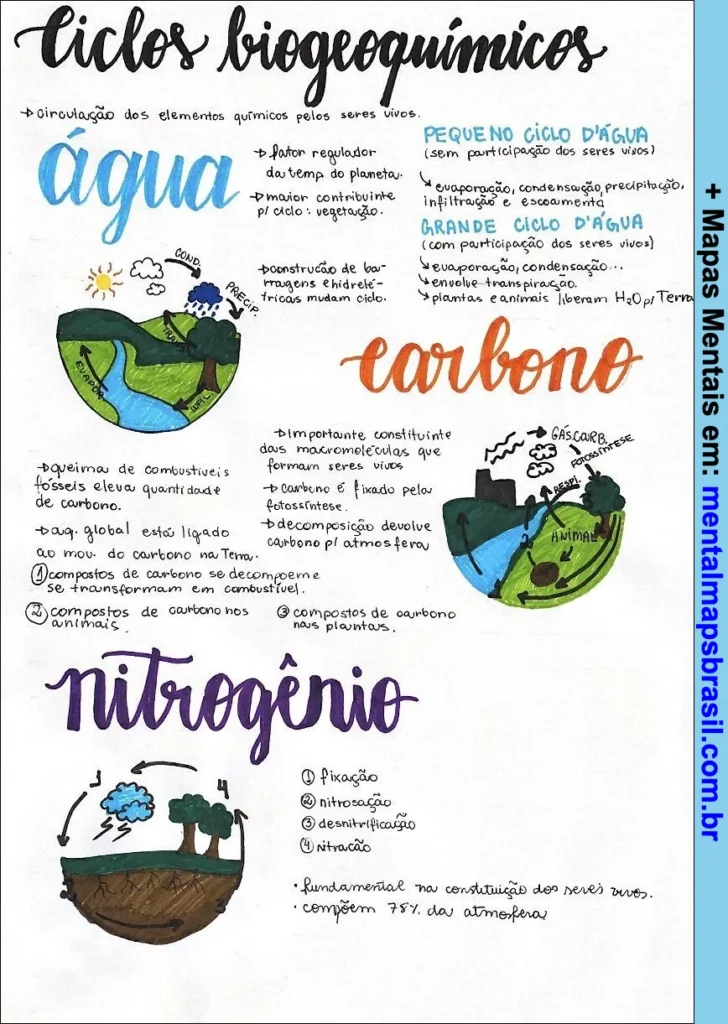 Ciclos biogeoquímicos
→ circulação dos elementos químicos pelos seres vivos.
água
→ fator regulador
da temp do planeta.
→ maior contribuinte
p/ ciclo: vegetação.
→ construção de bar-
ragens e hidrelé-
tricas mudam ciclo.
PEQUENO CICLO D'ÁGUA
(sem participação dos seres vivos)
↘ evaporação, condensação, precipitação,
infiltração e escoamento
GRANDE CICLO D'ÁGUA
(com participação dos seres vivos)
↘ evaporação, condensação...
↘ envolve transpiração.
↘ plantas e animais liberam H₂O p/ Terra
COND.
PRECIP.
TRA
EVAPOR.
INFIL.
carbono
→ queima de combustíveis
fósseis eleva quantidade
de carbono.
→ aq. global está ligado
ao mov. do carbono na Terra.
→ Importante constituinte
das macromoléculas que
formam seres vivos
→ carbono é fixado pela
fotossíntese.
→ decomposição devolve
carbono p/ atmosfera
GÁS CARB.
FOTOSSÍNTESE
RESPI.
ANIMAL
① compostos de carbono se decompoem e
se transformam em combustível.
② compostos de carbono nos
animais.
③ compostos de carbono
nas plantas.
nitrogênio
1
4
2
3
① fixação
② nitrosação
③ desnitrificação
④ nitração
• fundamental na constituição dos seres vivos.
• compõem 78% da atmosfera
+ Mapas Mentais em: mentalmapsbrasil.com.br